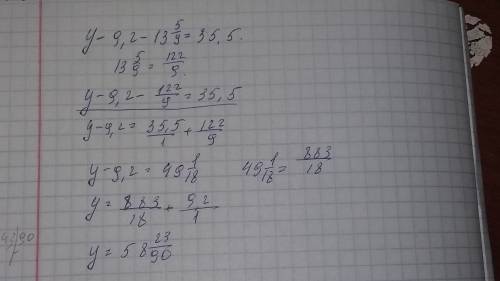 y - 9,2 - 13 5/9 = 35,5.
13 5/9 = 122/9.
y - 9,2 - 122/9 = 35,5
y - 9,2 = 35,5/1 + 122/9
y - 9,2 = 49 1/18 49 1/18 = 883/18
y = 883/18 + 9,2/1
y = 58 23/90